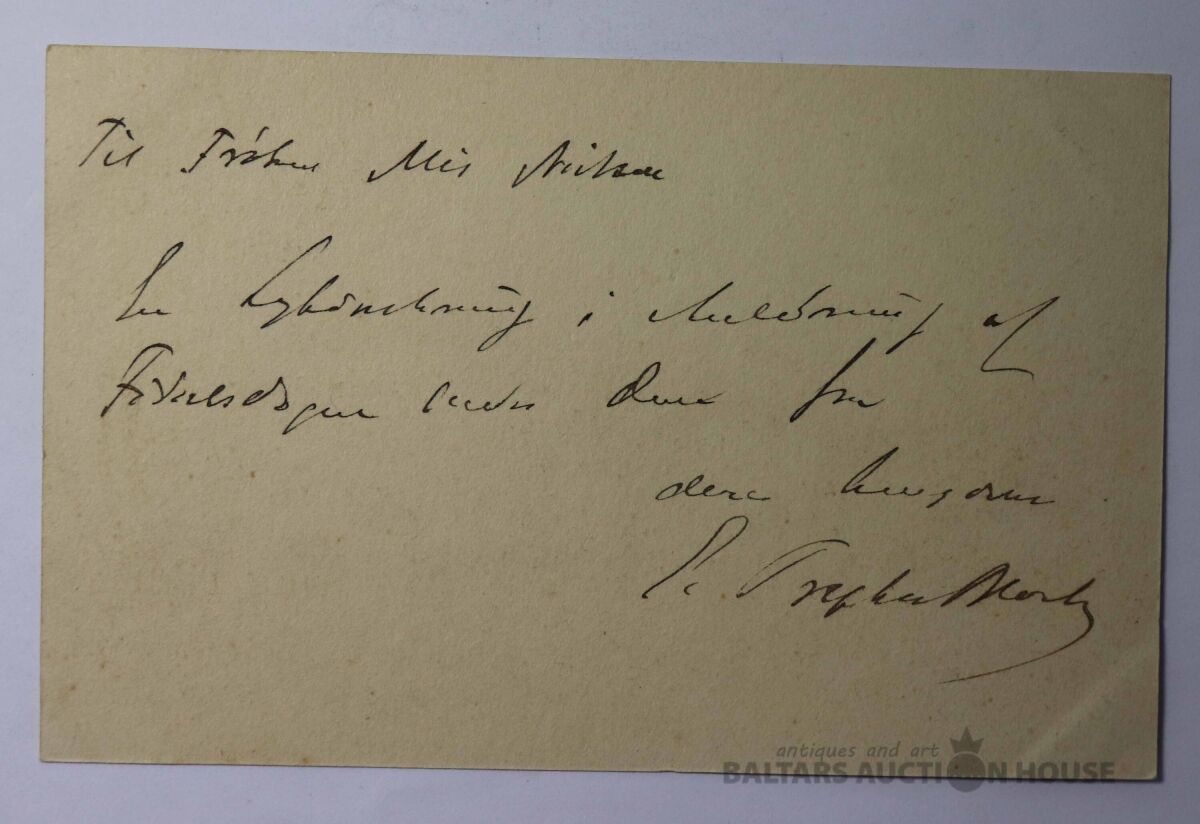 Til Frøken Mis Nielsen
En Lykønskning i Anledning af
Fødselsdagen sendes Dem fra
deres hengivne
antiques and art
BALTARS AUCTION HOUSE